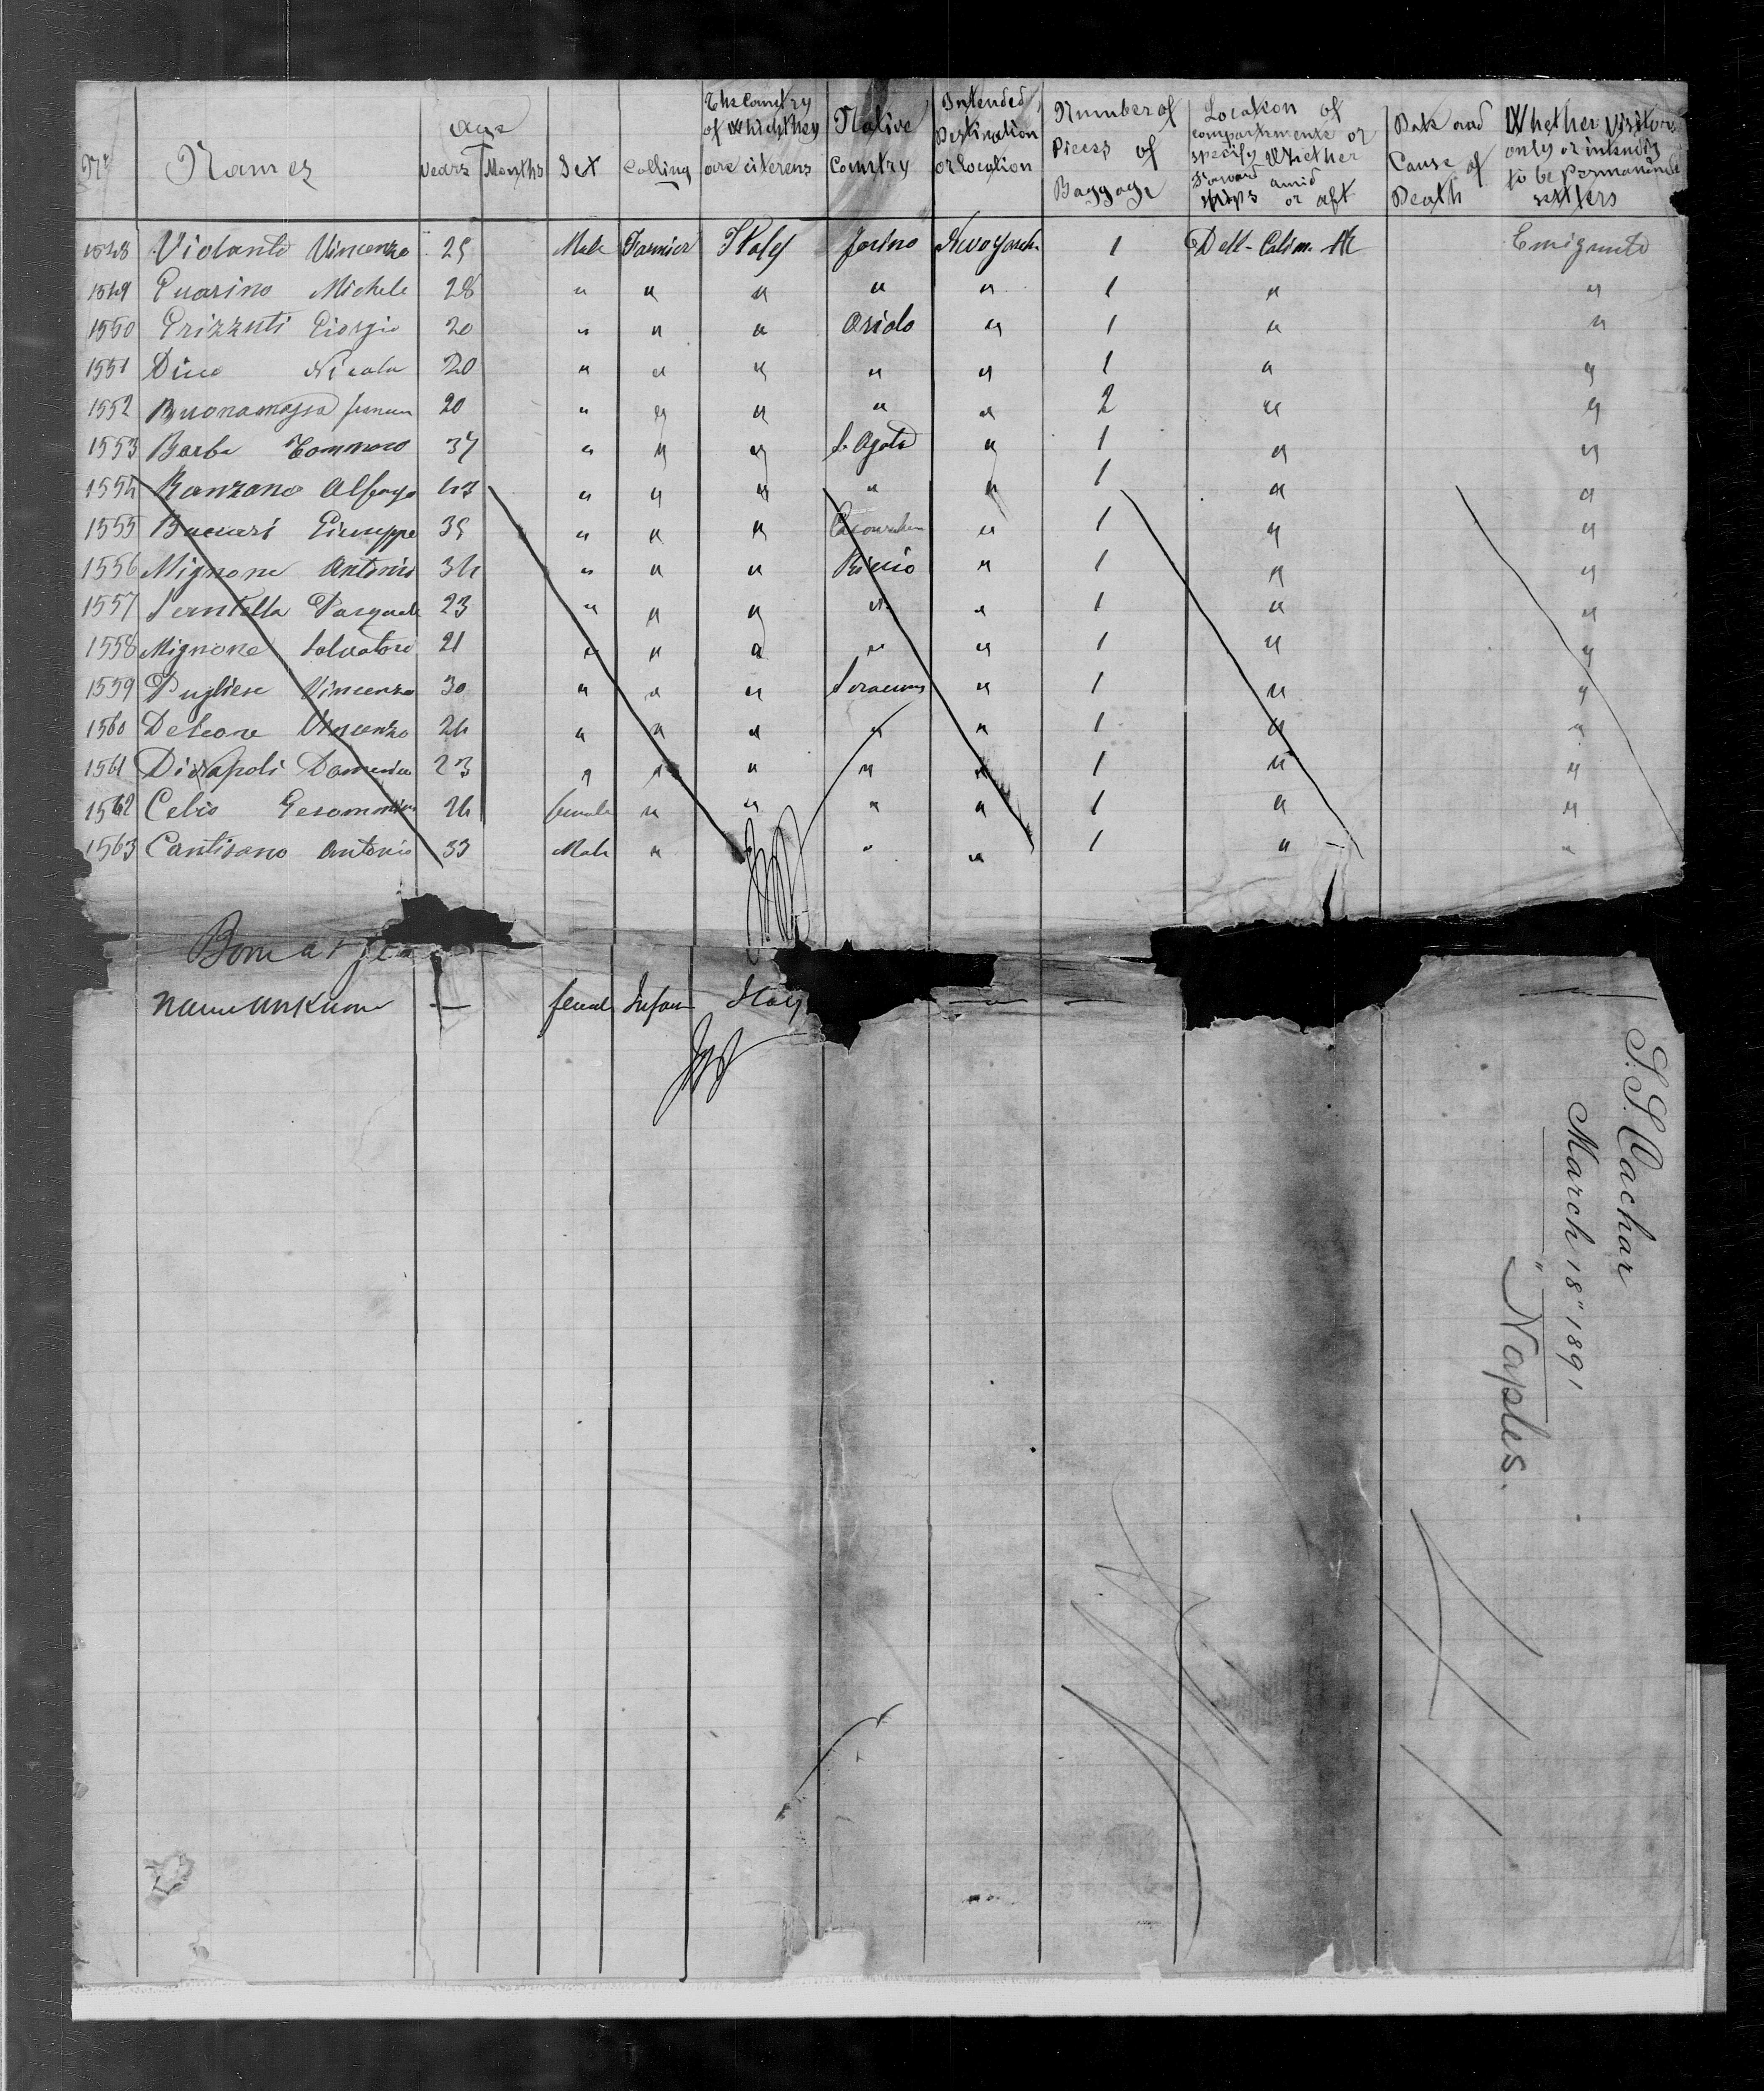 Nr Names Age Years Months Sex Calling The Country of which they are citerens Native Country Intended Destination or location Number of Pieces of Baggage Location of compartments or specify whether forward amid ships or aft Date and Cause of Death Whether Visitors only or intending to be permanente settlers
1548 Violante Vincenzo 25 Male Farmier Italy Forino 1 Emigrante
1549 Guarino Michele 28 " " " " " 1 " "
1550 Grizzuti Giorgio 20 " " " Oriolo " 1 " "
1551 Nicola 20 " " " " " 1 " "
1552 Buonamassa 20 " " " " " 2 " "
1553 Barba Tommaso 37 " " " S. Agata " 1 " "
1554 Ranzano 43 " " " " " 1 " "
1555 Giuseppe 35 " " " " 1 " "
1556 Mignone Antonio 34 " " " " 1 " "
1557 Pasquale 23 " " " " " 1 " "
1558 Mignone Salvatore 21 " " " " " 1 " "
1559 Pugliese Vincenzo 30 " " " " 1 " "
1560 DeLeone Vincenzo 24 " " " " " 1 " "
1561 DiNapoli Domenico 23 " " " " " 1 " "
1562 Celio 24 female " " " " 1 " "
1563 Cantisano Antonio 33 Male " " " 1 " "
Born at Sea
Name unknown — female Infant Italy — —
S.S. Vachar
March 18" 1891
" Naples.